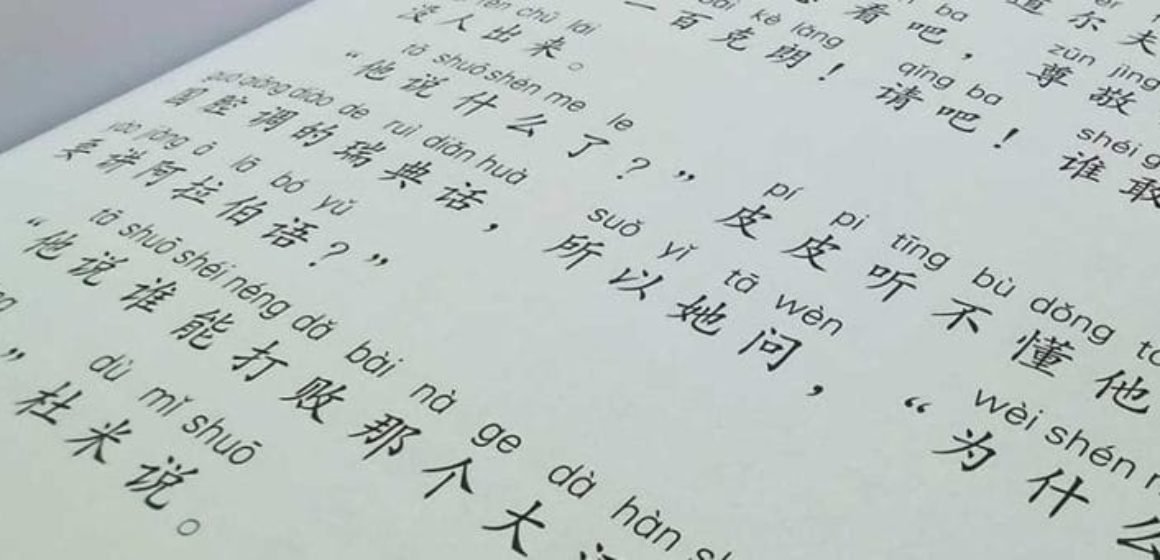 道尔夫
ba
看吧，
zūn jìng
尊敬
kè lǎng qǐng ba shéi
一百克朗！请吧！谁敢
rén chū lái
没人出来。
tā shuō shén me le pí pi tīng bù dǒng
“他说什么了？”皮皮听不懂他
guó qiāng diào de ruì diǎn huà suǒ yǐ tā wèn wèi shén
国腔调的瑞典话，所以她问，“为什么
yào jiǎng ā lā bó yǔ
要讲阿拉伯语？”
tā shuō shéi néng dǎ bài nà ge dà hàn
“他说谁能打败那个大
dù mǐ shuō
”杜米说。